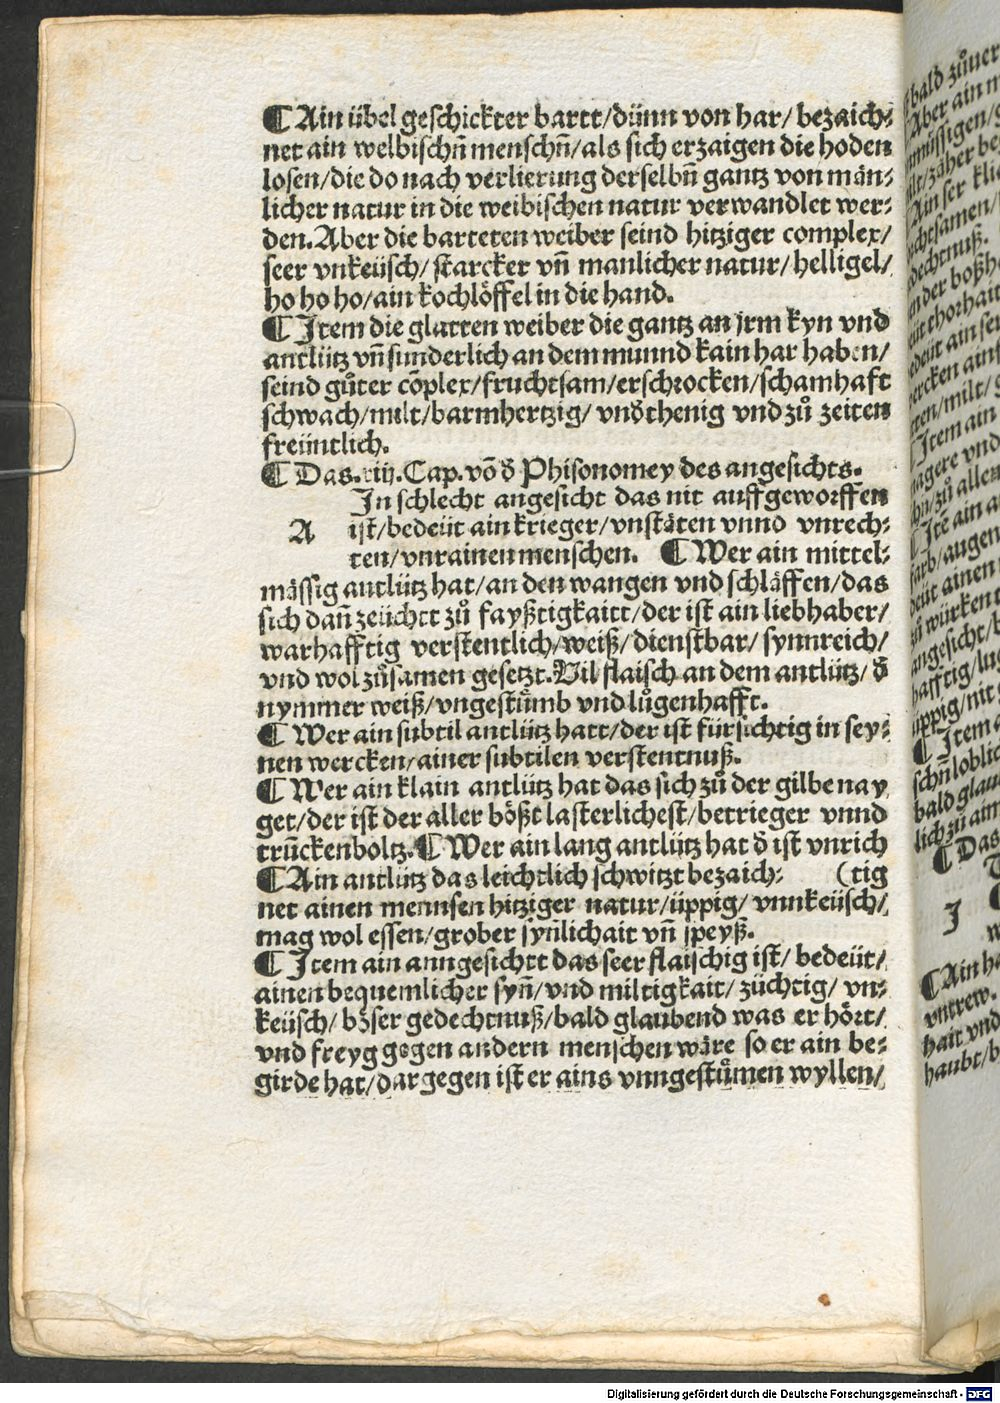 ¶ Ain übel geschickter bartt/dünn von har/ bezaich⸗
net ain welbischn̄ menschn̄/als sich erzaigen die hoden
losen/die do nach verlierung derselbn̄ gantz von män⸗
licher natur in die weibischen natur verwandlet wer⸗
den. Aber die barteten weiber seind hitziger complex/
seer vnkeüsch/ starcker vn̄ manlicher natur/ helligel/
ho ho ho/ain kochlöffel in die hand.
¶ Jtem die glatten weiber die gantz an jrm kyn vnd
antlütz vn̄ sunderlich an dem munnd kain har haben/
seind gůter cōplex/fruchtsam/erschrocken/schamhaft
schwach/milt/barmhertzig/ vnd̄thenig vnd zů zeiten
freüntlich.
¶ Das .xiij. Cap. vō d̄ Phisonomey des angesichts.
Jn schlecht angesicht das nit auffgeworffen
A ist/bedeüt ain krieger/vnstäten vnnd vnrech⸗
ten/vnrainen menschen. ¶ Wer ain mittel⸗
mässig antlütz hat/an den wangen vnd schläffen/das
sich dan̄ zeüchtt zů fayßtigkaitt/der ist ain liebhaber/
warhafftig verstentlich/weiß/dienstbar/ synnreich/
vnd wol zůsamen gesetzt. Vil flaisch an dem antlütz/ d̄
nymmer weiß/vngestům̈b vnd lůgenhafft.
¶ Wer ain subtil antlütz hatt/der ist fürsichtig in sey⸗
nen wercken/ainer subtilen verstentnuß.
¶ Wer ain klain antlütz hat das sich zů der gilbe nay
get/der ist der aller bößt lasterlichest/betrieger vnnd
trūckenboltz. ¶ Wer ain lang antlütz hat d̄ ist vnrich
¶ Ain antlütz das leichtlich schwitzt bezaich⸗ (tig
net ainen mennsen hitziger natur/üppig/ vnnkeüsch/
mag wol essen/grober syn̄lichait vn̄ speyß.
¶ Jtem ain anngesichtt das seer flaischig ist/ bedeüt/
ainen bequemlicher syn̄/vnd miltigkait/ züchtig/ vn⸗
keüsch/ böser gedechtnuß/bald glaubend was er hört/
vnd freyg gegen andern menschen wäre so er ain be⸗
girde hat/dargegen ist er ains vnngestůmen wyllen/
bald zůuer
Aber ain m
Ain ser kl
Jtem ain
zů aller
farb/augen
angesicht/
üppig/nit
¶ Jtem
schn̄ loblic
bald glau
lich zů ain
¶ Das
J
¶ Ain ha
vntrew.
hait vnd
haubt/b
Digitalisierung gefördert durch die Deutsche Forschungsgemeinschaft - DFG